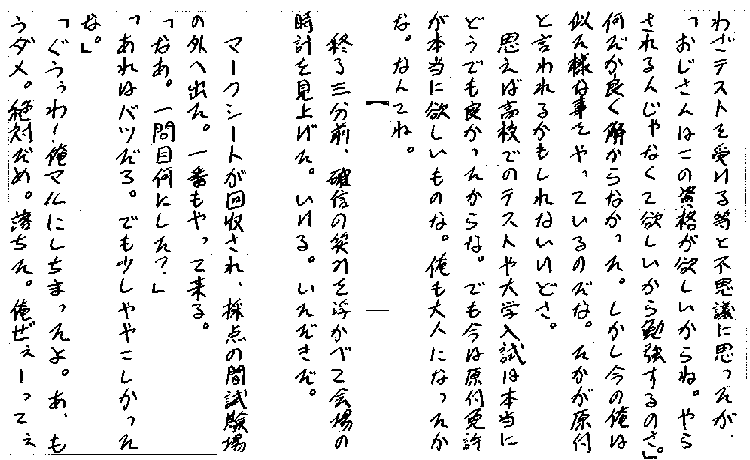 わざテストを受ける等と不思議に思ったが、
「おじさんはこの資格が欲しいからね。やら
されるんじゃなくて欲しいから勉強するのさ。」
何だか良く解からなかった。しかし今の俺は
似た様な事をやっているのだな。たかが原付
と言われるかもしれないけどさ。
思えば高校でのテストや大学入試は本当に
どうでも良かったからな。でも今は原付免許
が本当に欲しいものな。俺も大人になったか
な。なんてね。
終る三分前、確信の笑みを浮かべて会場の
時計を見上げた。いける。いただきだ。
マークシートが回収され、採点の間試験場
の外へ出た。一番もやって来る。
「なあ。一問目何にした?」
「あれはバツだろ。でも少しややこしかった
な。」
「ぐうぅわ!俺マルにしちまったよ。あ、も
うダメ。絶対だめ。落ちた。俺ぜぇーってぇ